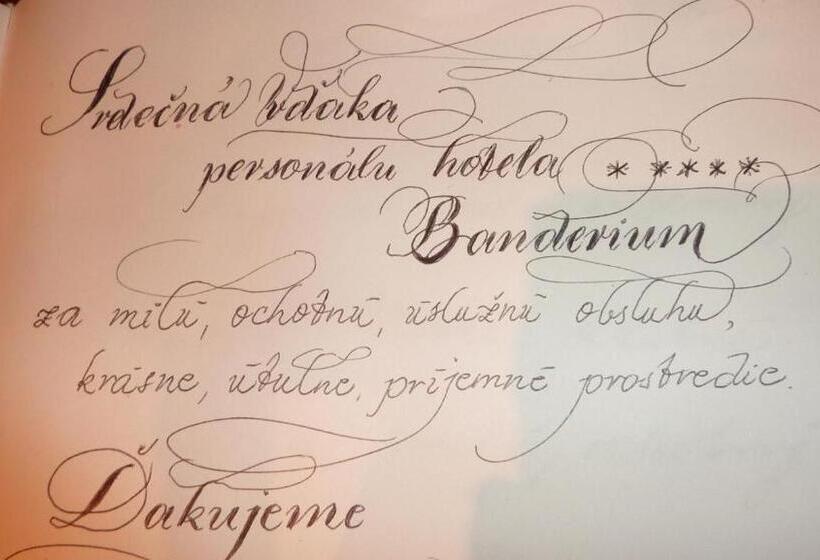 Srdečná vďaka
personálu hotela * * * * *
Banderium
za milú, ochotnú, úslužnú obsluhu,
krásne, útulne, príjemné prostredie.
Ďakujeme